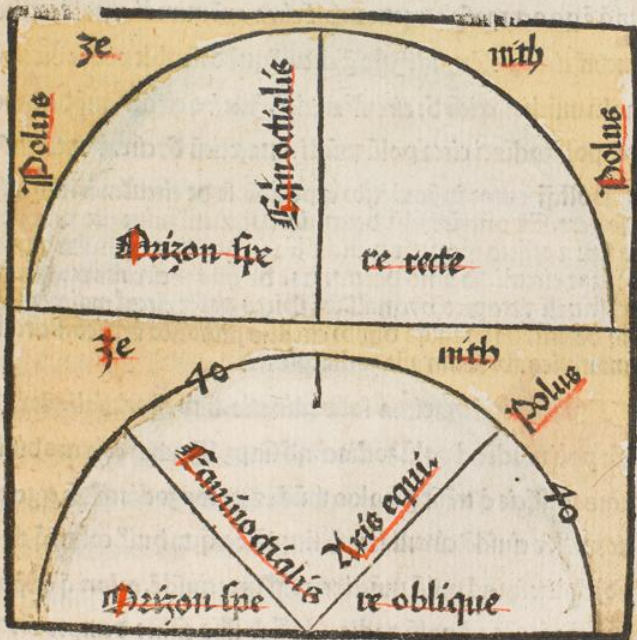 Ze nith
Polus
Equinoctialis
Polus
Orizon spe re recte
Ze nith
40
Polus
Equinoctialis
Axis equi.
40
Orizon spe re oblique